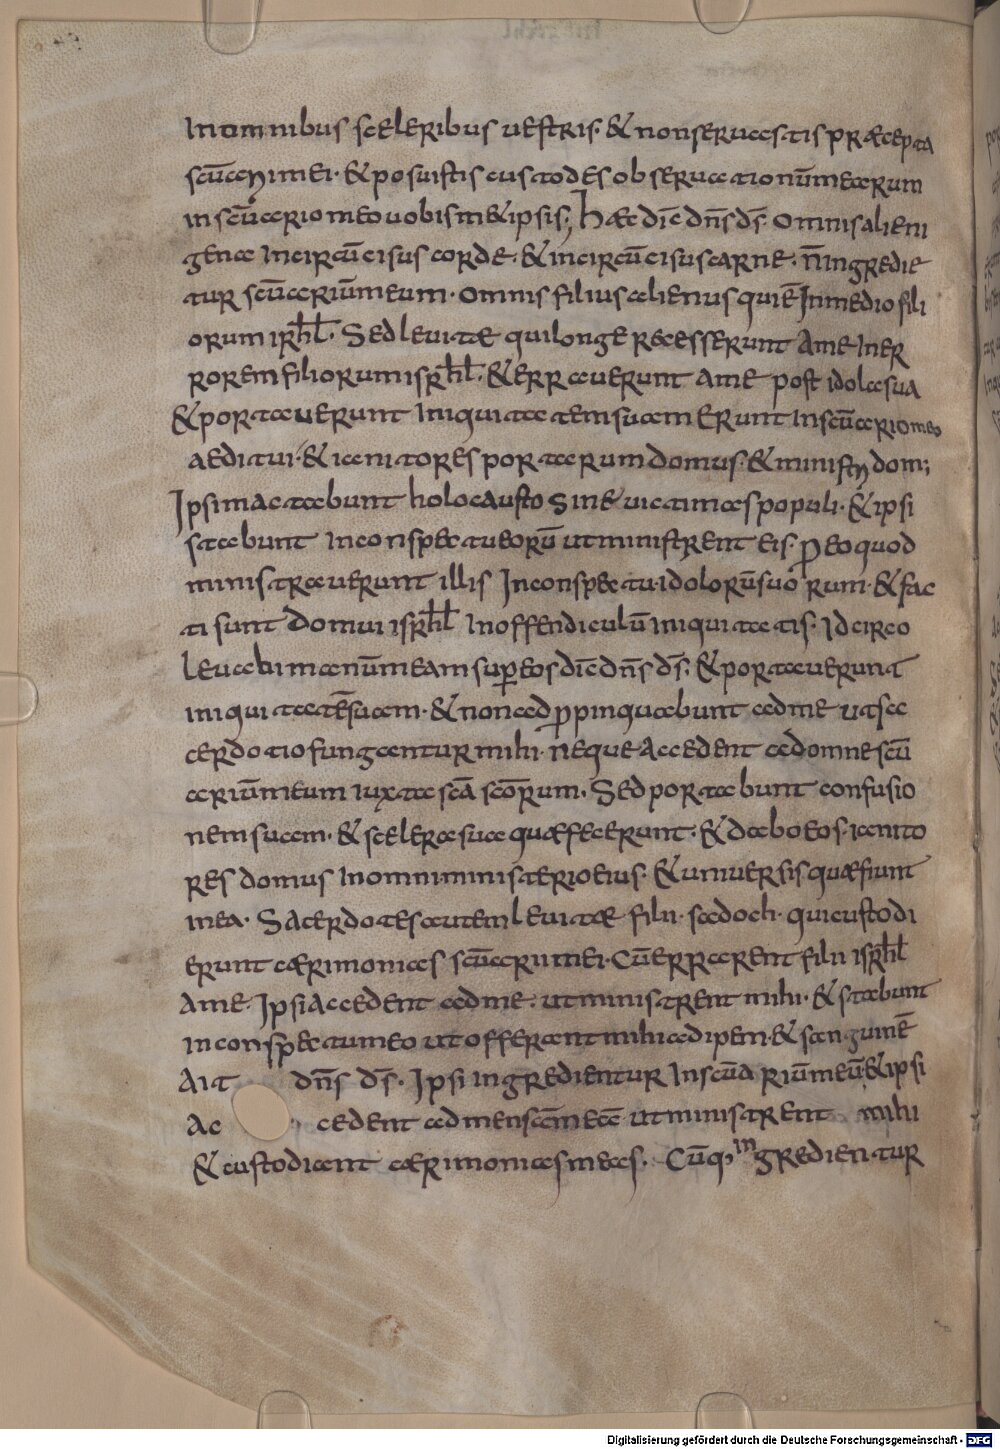 In omnibus sceleribus uestris· & non seruastis præcepta
scuarii mei· & posuistis custodes obseruationū mearum
in scūario meo uobismetipsis; Haec dic̄ dn̄s ds̄· Omnis alieni
gena incircūcisus corde· & incircūcisus carne· n̄ ingredie
tur scūariūmeum· omnis filius alienus qui ē In medio fili
orum isrł· Sed leuitae qui longe recesserunt A me In er
rorem filiorum isrhl· & errauerunt a me post idola sua
& portauerunt iniquitatem suam Erunt In scūario meo
aeditui· & ianitores portarum domus· & ministri dom;
Ipsi mactabunt holocausto sine uictimas populi· & ipsi
stabunt In conspectu eorū ut ministrent eis· p̄ eo quod
ministrauerunt illis In conspectu idolorū suorum· & fac
ti sunt domui isrhl In offendiculū iniquitatis· Idcirco
leuabi manūmeam sup̄ eos dic̄ dn̄s ds̄· & portauerunt
iniquitatē suam· & non adp̄pinquabunt ad me ut sa
cerdotio fungantur mihi· neque accedent ad omne scū
ariūmeum iuxta scā scōrum· Sed portabunt confusio
nem suam· & scelera sua quæ fecerunt· & dabo eos ianito
res domus In omni ministerio eius· & uniuersis quæ fiunt
in ea· Sacerdotes autem leuitæ filii sadoch· qui custodi
erunt cærimonias scūarii mei· Cū errarent filii isrhl
A me· Ipsi Accedent ad me· ut ministrent mihi· & stabunt
in conspectu meo ut offerant mihi adipem & sanguinē
Ait dn̄s ds̄· Ipsi ingredientur In scūariūmeū· & ipsi
Accedent ad mensam̄ meā ut ministrent mihi
& custodiant cærimonias meas· Cūq, ingredientur
Digitalisierung gefördert durch die Deutsche Forschungsgemeinschaft - DFG